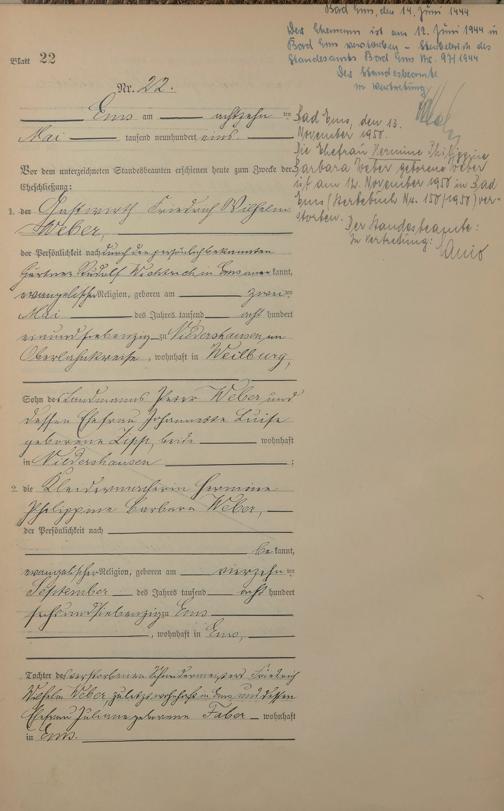 Bad Ems, den 14. Juni 1944
Der Ehemann ist am 12. Juni 1944 in
Bad Ems verstorben – Sterbebuch des
Standesamts Bad Ems Nr. 97/1944
Der Standesbeamte
in Vertretung:
Bad Ems, den 13.
November 1950.
Die Ehefrau Hermine Philippine
Barbara Weber geborene Weber
ist am 12. November 1950 in Bad
Ems (Sterbebuch Nr. 150/1950) ver-
storben.
Der Standesbeamte:
In Vertretung:
Blatt 22
Nr. 22.
Ems am achtzehn ten
Mai tausend neunhundert eins
Vor dem unterzeichneten Standesbeamten erschienen heute zum Zwecke der
Eheschließung:
1. der Gastwirth Friedrich Wilhelm
Weber,
der Persönlichkeit nach durch den persönlich bekannten
Rudolf in Ems aner kannt,
evangelischer Religion, geboren am zwei ten
Mai des Jahres tausend acht hundert
einundsiebenzig zu Niedershausen, im
Oberlahnkreise, wohnhaft in Weilburg,
Sohn des Landmanns Peter Weber und
dessen Ehefrau Johannette Luise
geborene Zipp, beide wohnhaft
in Niedershausen ;
2. die Kleidermacherin Hermine
Philippine Barbara Weber,
der Persönlichkeit nach
be kannt,
evangelischer Religion, geboren am vierzehn ten
September des Jahres tausend acht hundert
sechsundsiebenzig zu Ems
, wohnhaft in Ems,
Tochter des verstorbenen Schneidermeisters Friedrich
Wilhelm Weber, zuletzt wohnhaft in Ems und dessen
Ehefrau Juliane geborene Faber wohnhaft
in Ems.